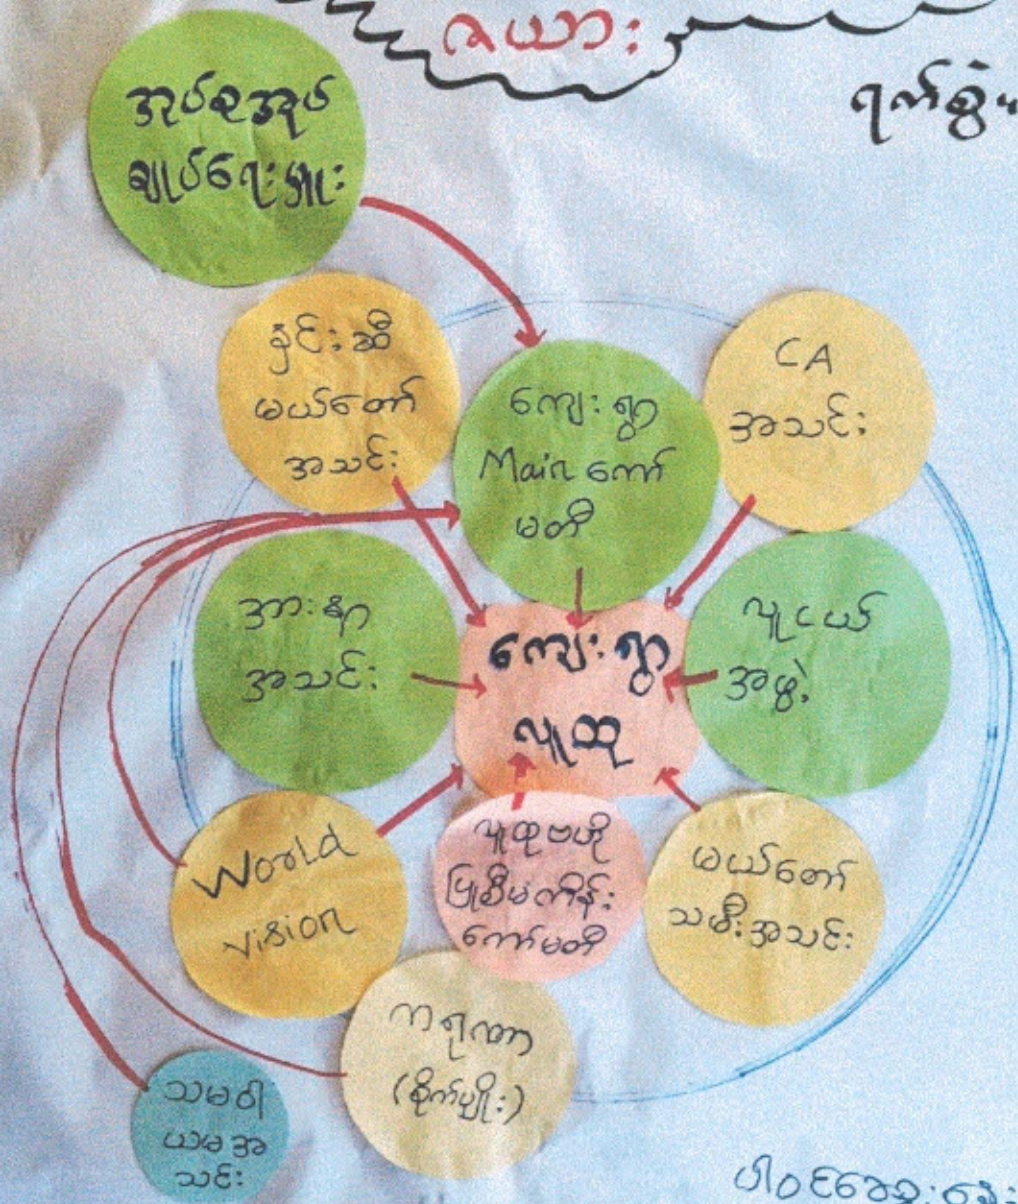 ဇယား
အုပ်စုအုပ်
ချုပ်ရေးမှူး
နှင်းဆီ
မယ်တော်
အသင်း
ကျေးရွာ
Main ကော်
မတီ
CA
အသင်း
အားနာ
အသင်း
ကျေးရွာ
လူထု
လူငယ်
အဖွဲ့
World
vision
လူထုဗဟို
ပြုစီမံကိန်း
ကော်မတီ
မယ်တော်
သမီးအသင်း
ကရုဏာ
(စိုက်ပျိုး)
သမဝါ
ယမအ
သင်း